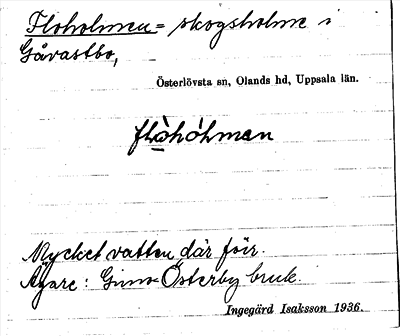 Floholmen = skogsholme i
Gåvastbo,
Österlövsta sn, Olands hd, Uppsala län.
flȯ̱hólmen
Mycket vatten där förr.
Ägare: Gimo-Österby bruk.
Ingegärd Isaksson 1936.